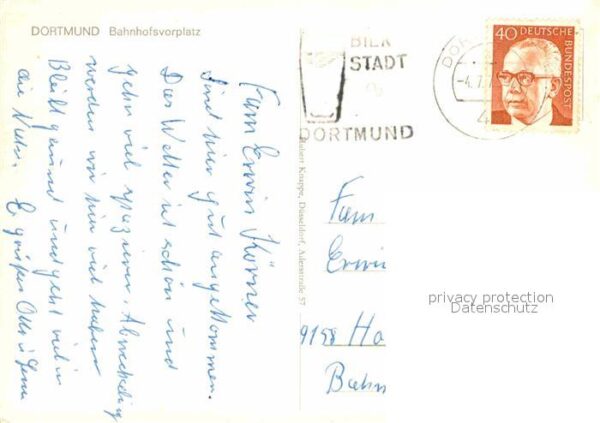 DORTMUND Bahnhofsvorplatz
BIER
STADT
DORTMUND
DOR
-4.7.
4
40 DEUTSCHE
BUNDESPOST
Fam Erwin Körner
Sind hier gut angekommen.
Das Wetter ist schön und
gehen viel spazieren. Abwechslung
werden wir hier viel haben
Bleibt gesund und geht viel in
die Natur. Es grüßen Otto u
Hubert Knappe, Düsseldorf, Adersstraße 57
Fam
Erwi
9198 Ho
Bahn
privacy protection
Datenschutz